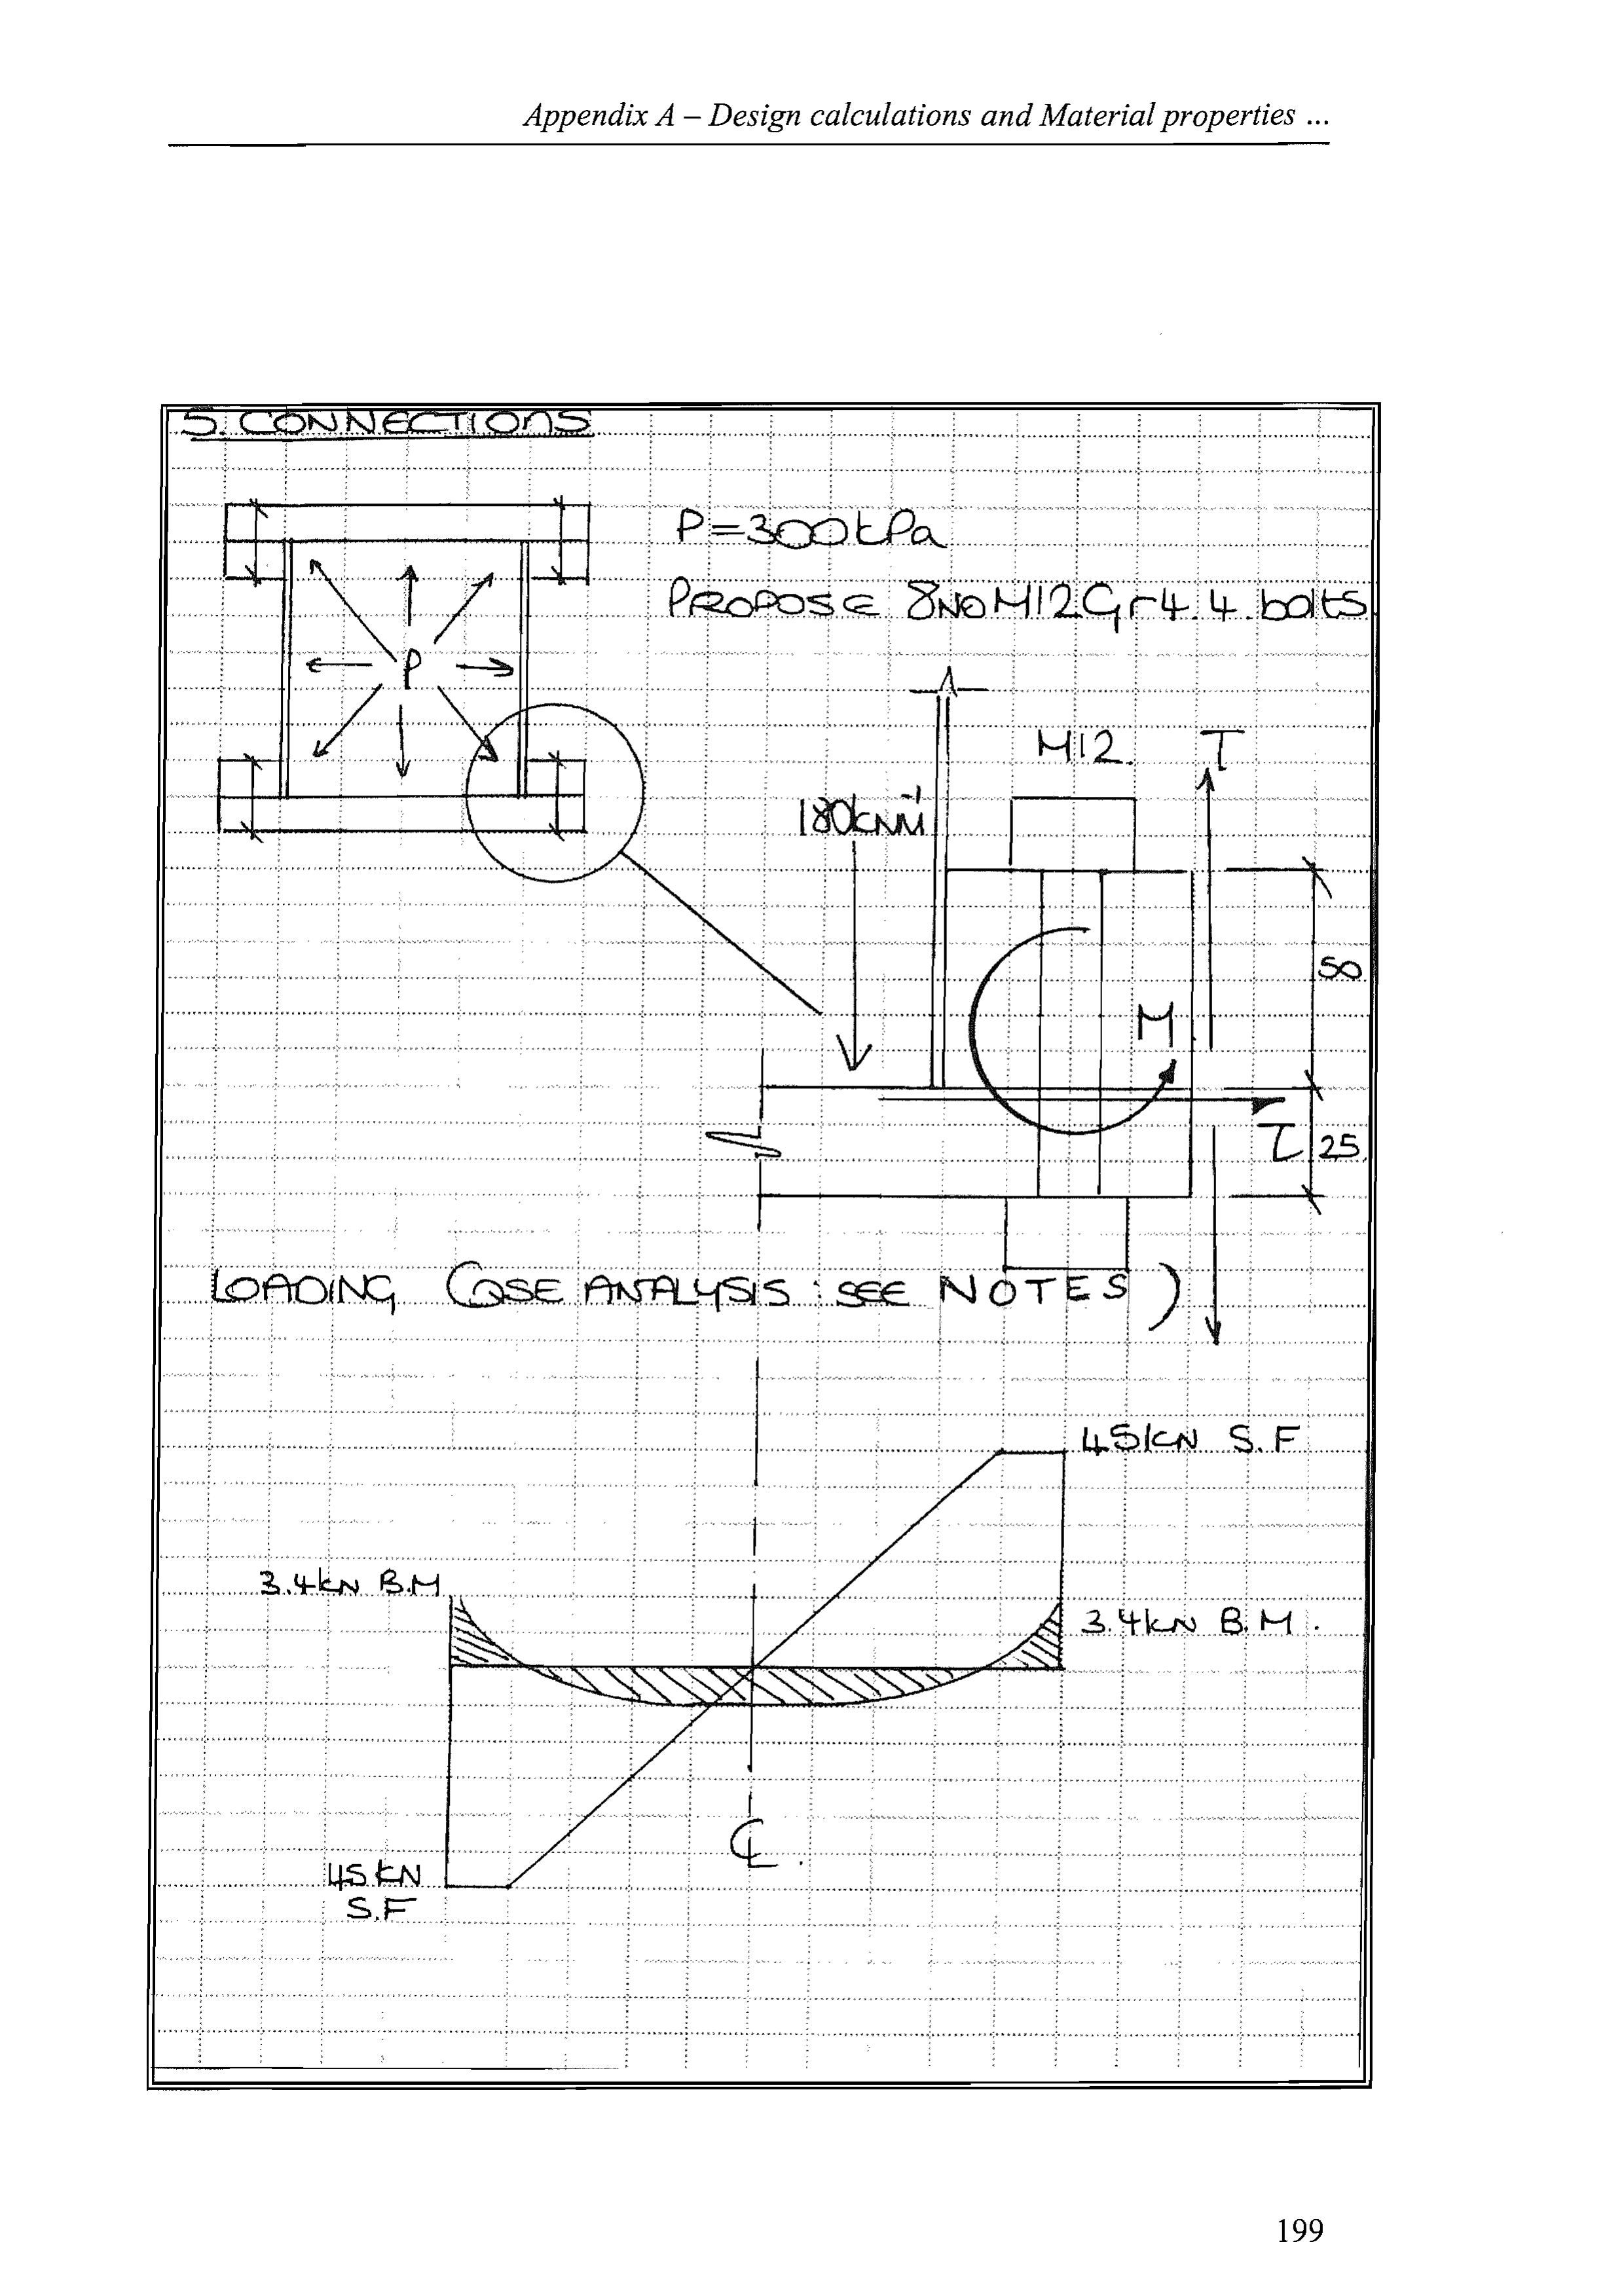 Appendix A – Design calculations and Material properties ...
5. CONNECTIONS
P=300kPa
PROPOSE 8NO M12 Gr 4.4. bolts
P
M12.
T
180kNM⁻¹
50
M
τ
25
LOADING CASE ANALYSIS : SEE NOTES )
45kN S.F
3.4kN B.M
3.4kN B.M.
℄.
45kN
S.F
199